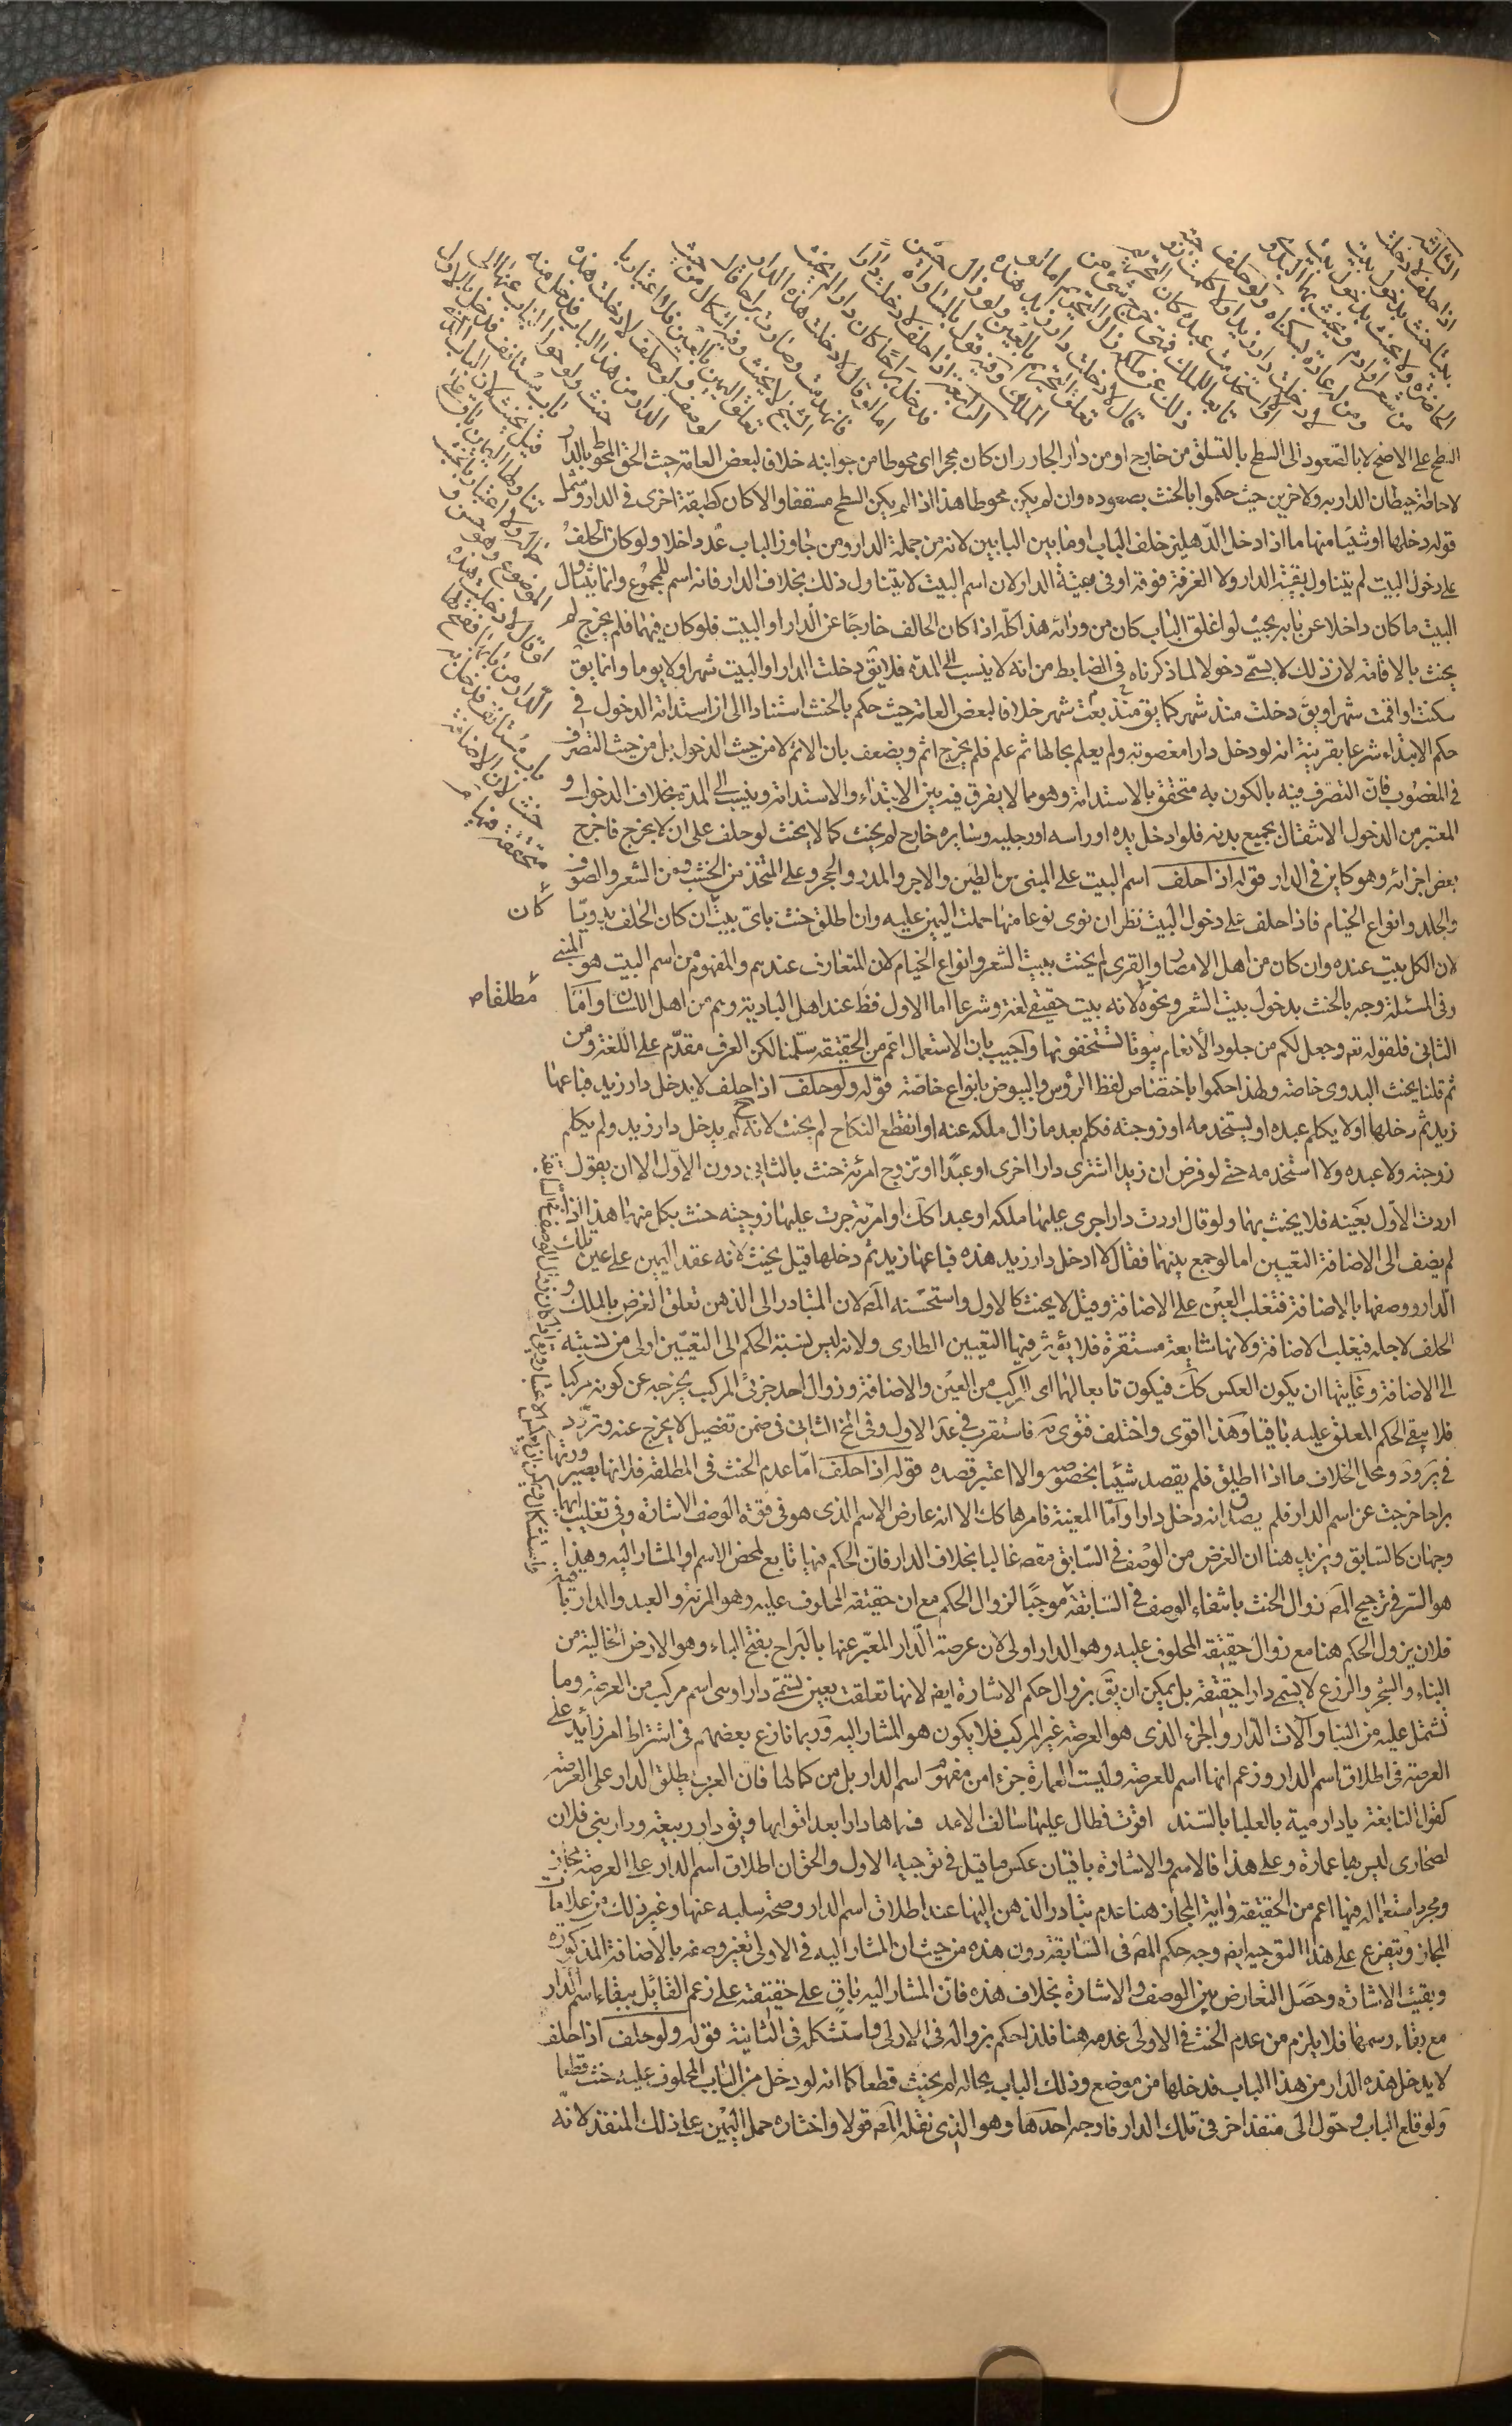 الثالثة
اذا حلف لا دخلت
بيتا حنث بدخول بيت
الحاضرة ولا يحنث بدخول بيت
من شعر او ادم ويحنث بهما البدوى
ومن له عادة بسكناه ولو حلف
لا دخلت دار زيد او لا كلمت زوجته
او لا استخدمت عبده كان التحريم
تابعا للملك فمتى خرج شئ من
ذلك عن ملكه زال التحريم اما لو
قال لا دخلت دار زيد هذه
تعلق التحريم بالعين ولو زال
الملك وفيه قول بالمساواة حسن
الرابعة اذا حلف لا دخلت دارا
فدخل براحا كان دارا لم يحنث
اما لو قال لا دخلت هذه الدار
فانهدمت وصارت براحا قال
الشيخ لا يحنث وفيه اشكال من حيث
تعلق اليمين بالعين فلا اعتبار با
لوصف ولو حلف لا دخلت هذه
الدار من هذا الباب فدخل منه
حنث ولو حول الباب عنها الى
باب مستانف فدخل بالاول
قيل يحنث لان الباب الذى
تناولها اليمين باق على
حاله ولا اعتبار بالخشب
الموضوع وهو حسن و
لو قال لا دخلت هذه
الدار من بابها ففتح لها
باب مستانف فدخل به
حنث لان الاضافة
متحققة فيها
السطح على الاصح لا بالصعود الى السطح بالتسلق من خارج او من دار الجار وان كان محجرا اى محوطا من جوانبه خلافا لبعض العامة حيث الحق المحوط بالدار
لاحاطة حيطان الدار به ولاخرين حيث حكموا بالحنث بصعوده وان لم يكن محوطا هذا اذا لم يكن السطح مسقفا والا كان كطبقة اخرى فى الدار ويشمل
قوله دخلها او شيئا منها ما اذا دخل الدهليز خلف الباب او ما بين البابين لانه من جملة الدار ومن جاوز الباب عد داخلا ولو كان الحلف
على دخول البيت لم يتناول بقية الدار ولا الغرفة فوقه او فى بقية الدار لان اسم البيت لا يتناول ذلك بخلاف الدار فانه اسم للمجموع وانما يتناول
البيت ما كان داخلا عن بابه بحيث لو اغلق الباب كان من ورائه هذا كله اذا كان الحالف خارجا عن الدار او البيت فلو كان فيهما فلم يخرج لم
يحنث بالاقامة لان ذلك لا يسمى دخولا لما ذكرناه فى الضابط من انه لا ينسب الى المدة فلا يق دخلت الدار او البيت شهرا ولا يوما وانما يق
سكنت او اقمت شهرا ويق دخلت منذ شهر كما يق بعت منذ شهر خلافا لبعض العامة حيث حكم بالحنث استنادا الى ان استدامة الدخول فى
حكم الابتداء شرعا بقرينة انه لو دخل دارا مغصوبة ولم يعلم بحالها ثم علم فلم يخرج اثم ويضعف بان الاثم لا من حيث الدخول بل من حيث التصرف
فى المغصوب فان التصرف فيه بالكون به متحقق بالاستدامة وهو مما لا يفرق فيه بين الابتداء والاستدامة وينسب الى المدة بخلاف الدخول و
المعتبر من الدخول الانتقال بجميع بدنه فلو ادخل يده او راسه او رجليه وسايره خارج لم يحنث كما لا يحنث لو حلف على ان لا يخرج فاخرج
بعض اجزائه وهو كاين فى الدار قوله اذا حلف اسم البيت على المبنى من الطين والاجر والمدر والحجر وعلى المتخذ من الخشب ومن الشعر والصوف
والجلد وانواع الخيام فاذا حلف على دخول البيت نظر ان نوى نوعا منها حملت اليمين عليه وان اطلق حنث باى بيت ان كان الحالف بدويا
كان
لان الكل بيت عنده وان كان من اهل الامصار والقرى لم يحنث ببيت الشعر وانواع الخيام لان المتعارف عندهم والمفهوم من اسم البيت هو المبنى
وفى المسئلة وجه بالحنث بدخول بيت الشعر ونحوه لانه بيت حقيقة لغة وشرعا اما الاول فظ عند اهل البادية وهم من اهل اللسان واما
مطلقا ص
الثانى فلقوله تعم وجعل لكم من جلود الانعام بيوتا تستخفونها واجيب بان الاستعمال اعم من الحقيقة سلمنا لكن العرف مقدم على اللغة ومن
ثم قلنا يحنث البدوى خاصة ولهذا حكموا باختصاص لفظ الرؤس والبيوض بانواع خاصة قوله ولو حلف اذا حلف لا يدخل دار زيد فباعها
زيد ثم دخلها او لا يكلم عبده او يستخدمه او زوجته فكلم بعد ما زال ملكه عنه او انقطع النكاح لم يحنث لانه ح لم يدخل دار زيد ولم يكلم
زوجته ولا عبده ولا استخدمه حتى لو فرض ان زيدا اشترى دارا اخرى او عبدا او تزوج امرئة حنث بالثانى دون الاول الا ان يقول
اردت الاول بعينه فلا يحنث بهما ولو قال اردت دارا جرى عليها ملكه او عبدا كك او امرئة جرت عليها زوجيته حنث بكل منهما هذا اذا
لم يضف الى الاضافة التعيين اما لو جمع بينهما فقال لا ادخل دار زيد هذه فباعها زيد ثم دخلها قيل يحنث لانه عقد اليمين على عين تلك
الدار ووصفها بالاضافة فتغلب العين على الاضافة وقيل لا يحنث كالاول واستحسنه المص لان المتبادر الى الذهن تعلق الغرض بالملك و
الحلف لاجله فيغلب الاضافة ولانها شايعة مستقرة فلا يؤثر فيها التعيين الطارى ولانه ليس نسبة الحكم الى التعيين اولى من نسبته
الى الاضافة وغايتها ان يكون العكس كك فيكون تابعا لهما اى المركب من العين والاضافة وزوال احد جزئى المركب يخرجه عن كونه مركبا
فلا يبقى الحكم المعلق عليه باقيا وهذا اقوى واختلف فتوى فاستقرب فى عد الاول وفى المخ الثانى فى ضمن تفصيل لا يخرج عنه وتردد
فى يروود ومحل الخلاف ما اذا اطلق فلم يقصد شيئا بخصوصه والا اعتبر قصده قوله اذا حلف اما عدم الحنث فى المطلقة فلانها بصيرورتها
براحا خرجت عن اسم الدار فلم يصدق انه دخل دارا واما المعينة فامرها كك الا انه عارض الاسم الذى هو فى قوة الوصف الاشارة وفى تغليب ايهما
وجهان كالسابق ويزيد هنا ان الغرض من الوصف فى السابق مقص غالبا بخلاف الدار فان الحكم فيها تابع لمحض الاسم او المشار اليه وهذا
هو السر فى ترجيح المص زوال الحنث بانتفاء الوصف فى السابقة موجبا لزوال الحكم مع ان حقيقة المحلوف عليه وهو المرئة والعبد والدار باقية
فلان يزول الحكم هنا مع زوال حقيقة المحلوف عليه وهو الدار اولى لان عرصة الدار المعبر عنها بالبراح بفتح الباء وهو الارض الخالية من
البناء والشجر والزرع لا يسمى دارا حقيقة بل يمكن ان يق بزوال حكم الاشارة ايض لانها تعلقت بعين تسمى دارا وهى اسم مركب من العرصة وما
تشتمل عليه من البناء وآلات الدار والجزء الذى هو العرصة غير المركب فلا يكون هو المشار اليه وربما نازع بعضهم فى اشتراط امر زايد على
العرصة فى اطلاق اسم الدار وزعم انها اسم للعرصة وليست العمارة جزءا من مفهوم اسم الدار بل من كمالها فان العرب يطلق الدار على العرصة
كقول النابغة يا دار مية بالعليا بالسند اقوت فطال عليها سالف الامد فسماها دارا بعد اقوائها ويق دار ربيعة ودار بنى فلان
لصحارى ليس بها عمارة وعلى هذا فالاسم والاشارة باقيان عكس ما قيل فى توجيه الاول والحق ان اطلاق اسم الدار على العرصة مجاز
ومجرد استعماله فيها اعم من الحقيقة واية المجاز هنا عدم تبادر الذهن اليها عند اطلاق اسم الدار وصحة سلبه عنها وغير ذلك من علامات
المجاز ويتفرع على هذا التوجيه ايض وجه حكم المص فى السابقة دون هذه من حيث ان المشار اليه فى الاولى تغير وصفه بالاضافة المذكورة
وبقيت الاشارة وحصل التعارض بين الوصف والاشارة بخلاف هذه فان المشار اليه باق على حقيقته على زعم القايل ببقاء اسم الدار
مع بقاء رسمها فلا يلزم من عدم الحنث فى الاولى عدمه هنا فلذا حكم بزواله فى الاولى واستشكله فى الثانية قوله ولو حلف اذا حلف
لا يدخل هذه الدار من هذا الباب فدخلها من موضع وذلك الباب بحاله لم يحنث قطعا كما انه لو دخل من الباب المحلوف عليه حنث قطعا
ولو قلع الباب وحول الى منفذ اخر فى تلك الدار فاوجه احدها وهو الذى نقله المص قولا واختاره حمل اليمين على ذلك المنفذ لانه